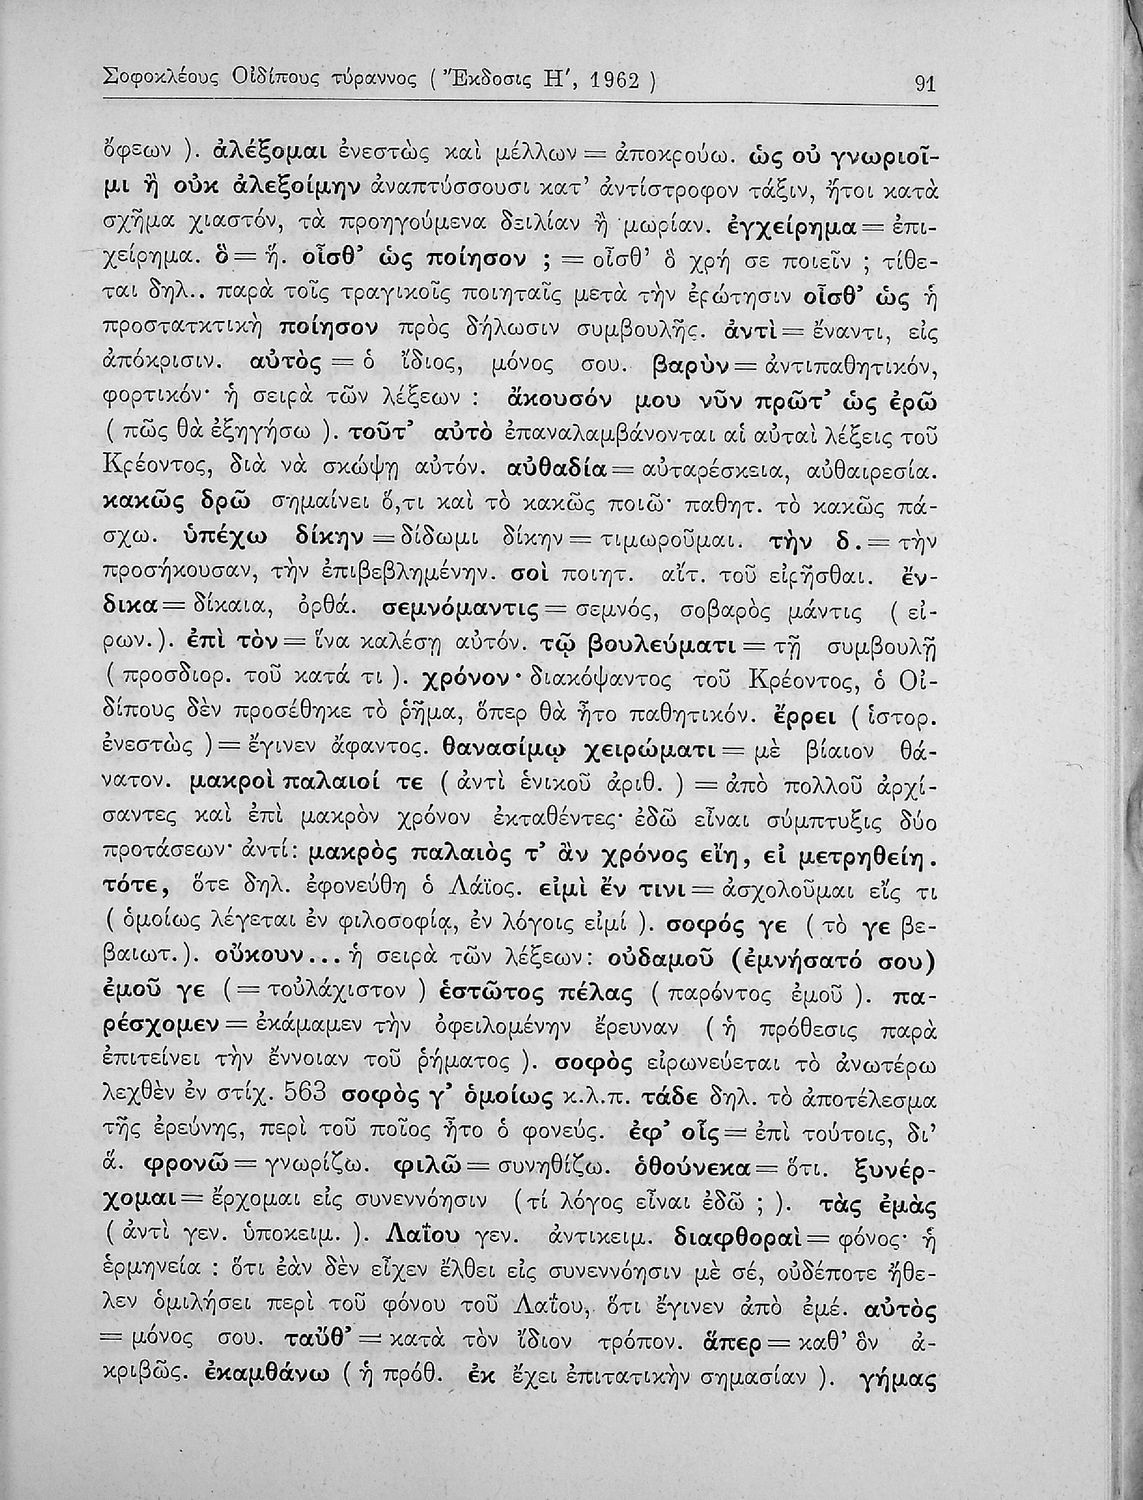 Σοφοκλέους Οἰδίπους τύραννος ( Ἔκδοσις Η΄, 1962 ) 91
ὄφεων ). ἀλέξομαι ἐνεστὼς καὶ μέλλων = ἀποκρούω. ὡς οὐ γνωριοῖ-
μι ἢ οὐκ ἀλεξοίμην ἀναπτύσσουσι κατ’ ἀντίστροφον τάξιν, ἤτοι κατὰ
σχῆμα χιαστόν, τὰ προηγούμενα δειλίαν ἢ μωρίαν. ἐγχείρημα = ἐπι-
χείρημα. ὃ = ἥ. οἶσθ’ ὡς ποίησον ; = οἶσθ’ ὃ χρή σε ποιεῖν ; τίθε-
ται δηλ.. παρὰ τοῖς τραγικοῖς ποιηταῖς μετὰ τὴν ἐρώτησιν οἶσθ’ ὡς ἡ
προστατκτικὴ ποίησον πρὸς δήλωσιν συμβουλῆς. ἀντὶ = ἔναντι, εἰς
ἀπόκρισιν. αὐτὸς = ὁ ἴδιος, μόνος σου. βαρὺν = ἀντιπαθητικόν,
φορτικόν· ἡ σειρὰ τῶν λέξεων : ἄκουσόν μου νῦν πρῶτ’ ὡς ἐρῶ
( πῶς θὰ ἐξηγήσω ). τοῦτ’ αὐτὸ ἐπαναλαμβάνονται αἱ αὐταὶ λέξεις τοῦ
Κρέοντος, διὰ νὰ σκώψῃ αὐτόν. αὐθαδία = αὐταρέσκεια, αὐθαιρεσία.
κακῶς δρῶ σημαίνει ὅ,τι καὶ τὸ κακῶς ποιῶ· παθητ. τὸ κακῶς πά-
σχω. ὑπέχω δίκην = δίδωμι δίκην = τιμωροῦμαι. τὴν δ. = τὴν
προσήκουσαν, τὴν ἐπιβεβλημένην. σοὶ ποιητ. αἴτ. τοῦ εἰρῆσθαι. ἔν-
δικα = δίκαια, ὀρθά. σεμνόμαντις = σεμνός, σοβαρὸς μάντις ( εἰ-
ρων.). ἐπὶ τὸν = ἵνα καλέσῃ αὐτόν. τῷ βουλεύματι = τῇ συμβουλῇ
( προσδιορ. τοῦ κατά τι ). χρόνον· διακόψαντος τοῦ Κρέοντος, ὁ Οἰ-
δίπους δὲν προσέθηκε τὸ ῥῆμα, ὅπερ θὰ ἦτο παθητικόν. ἔρρει ( ἱστορ.
ἐνεστὼς ) = ἔγινεν ἄφαντος. θανασίμῳ χειρώματι = μὲ βίαιον θά-
νατον. μακροὶ παλαιοί τε ( ἀντὶ ἑνικοῦ ἀριθ. ) = ἀπὸ πολλοῦ ἀρχί-
σαντες καὶ ἐπὶ μακρὸν χρόνον ἐκταθέντες· ἐδῶ εἶναι σύμπτυξις δύο
προτάσεων· ἀντί: μακρὸς παλαιὸς τ’ ἂν χρόνος εἴη, εἰ μετρηθείη.
τότε, ὅτε δηλ. ἐφονεύθη ὁ Λάϊος. εἰμὶ ἔν τινι = ἀσχολοῦμαι εἴς τι
( ὁμοίως λέγεται ἐν φιλοσοφίᾳ, ἐν λόγοις εἰμί ). σοφός γε ( τὸ γε βε-
βαιωτ.). οὔκουν... ἡ σειρὰ τῶν λέξεων: οὐδαμοῦ (ἐμνήσατό σου)
ἐμοῦ γε ( = τοὐλάχιστον ) ἑστῶτος πέλας ( παρόντος ἐμοῦ ). πα-
ρέσχομεν = ἐκάμαμεν τὴν ὀφειλομένην ἔρευναν ( ἡ πρόθεσις παρὰ
ἐπιτείνει τὴν ἔννοιαν τοῦ ῥήματος ). σοφὸς εἰρωνεύεται τὸ ἀνωτέρω
λεχθὲν ἐν στίχ. 563 σοφὸς γ’ ὁμοίως κ.λ.π. τάδε δηλ. τὸ ἀποτέλεσμα
τῆς ἐρεύνης, περὶ τοῦ ποῖος ἦτο ὁ φονεύς. ἐφ’ οἷς = ἐπὶ τούτοις, δι’
ἅ. φρονῶ = γνωρίζω. φιλῶ = συνηθίζω. ὁθούνεκα = ὅτι. ξυνέρ-
χομαι = ἔρχομαι εἰς συνεννόησιν (τί λόγος εἶναι ἐδῶ ; ). τὰς ἐμὰς
( ἀντὶ γεν. ὑποκειμ. ). Λαΐου γεν. ἀντικειμ. διαφθοραὶ = φόνος· ἡ
ἑρμηνεία : ὅτι ἐὰν δὲν εἶχεν ἔλθει εἰς συνεννόησιν μὲ σέ, οὐδέποτε ἤθε-
λεν ὁμιλήσει περὶ τοῦ φόνου τοῦ Λαΐου, ὅτι ἔγινεν ἀπὸ ἐμέ. αὐτὸς
= μόνος σου. ταὔθ’ = κατὰ τὸν ἴδιον τρόπον. ἅπερ = καθ’ ὃν ἀ-
κριβῶς. ἐκαμθάνω ( ἡ πρόθ. ἐκ ἔχει ἐπιτατικὴν σημασίαν ). γήμας